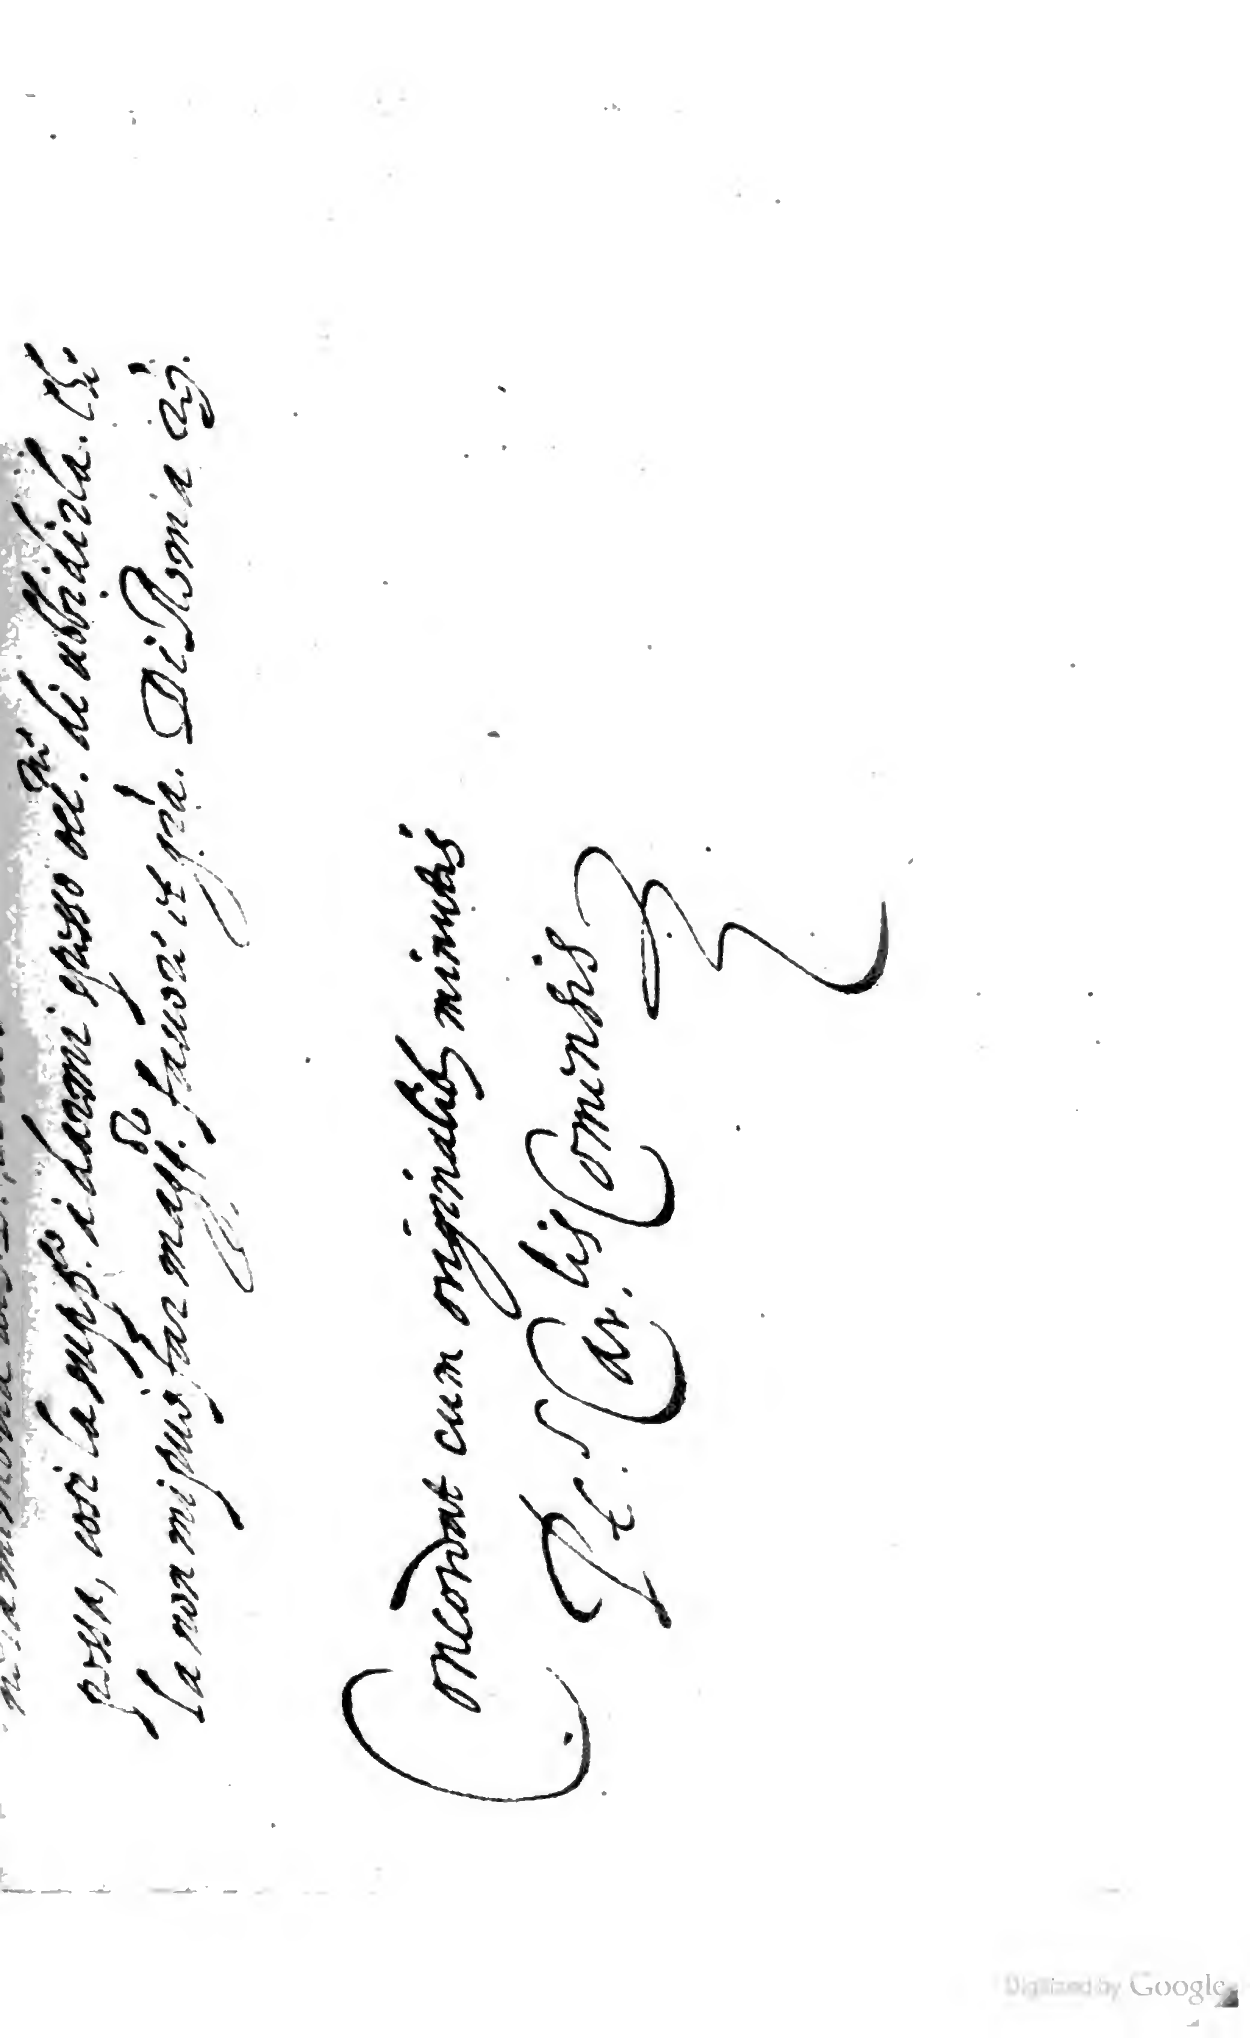 possa, così la supp.co à darmi spesso occ.ni di ubbidirla. Che
la non mi può far magg.or fauor et grã. Di Roma alli
Concordat cum originalib; minutis
Pt. Car.lis Comensis
Digitized by Google